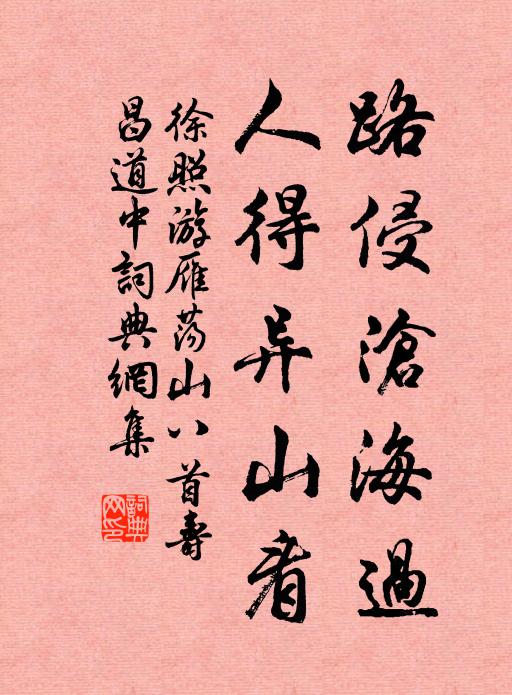 路侵滄海過
人得异山看
徐照游雁蕩山八首壽
昌道中詞典網集
詞典網印